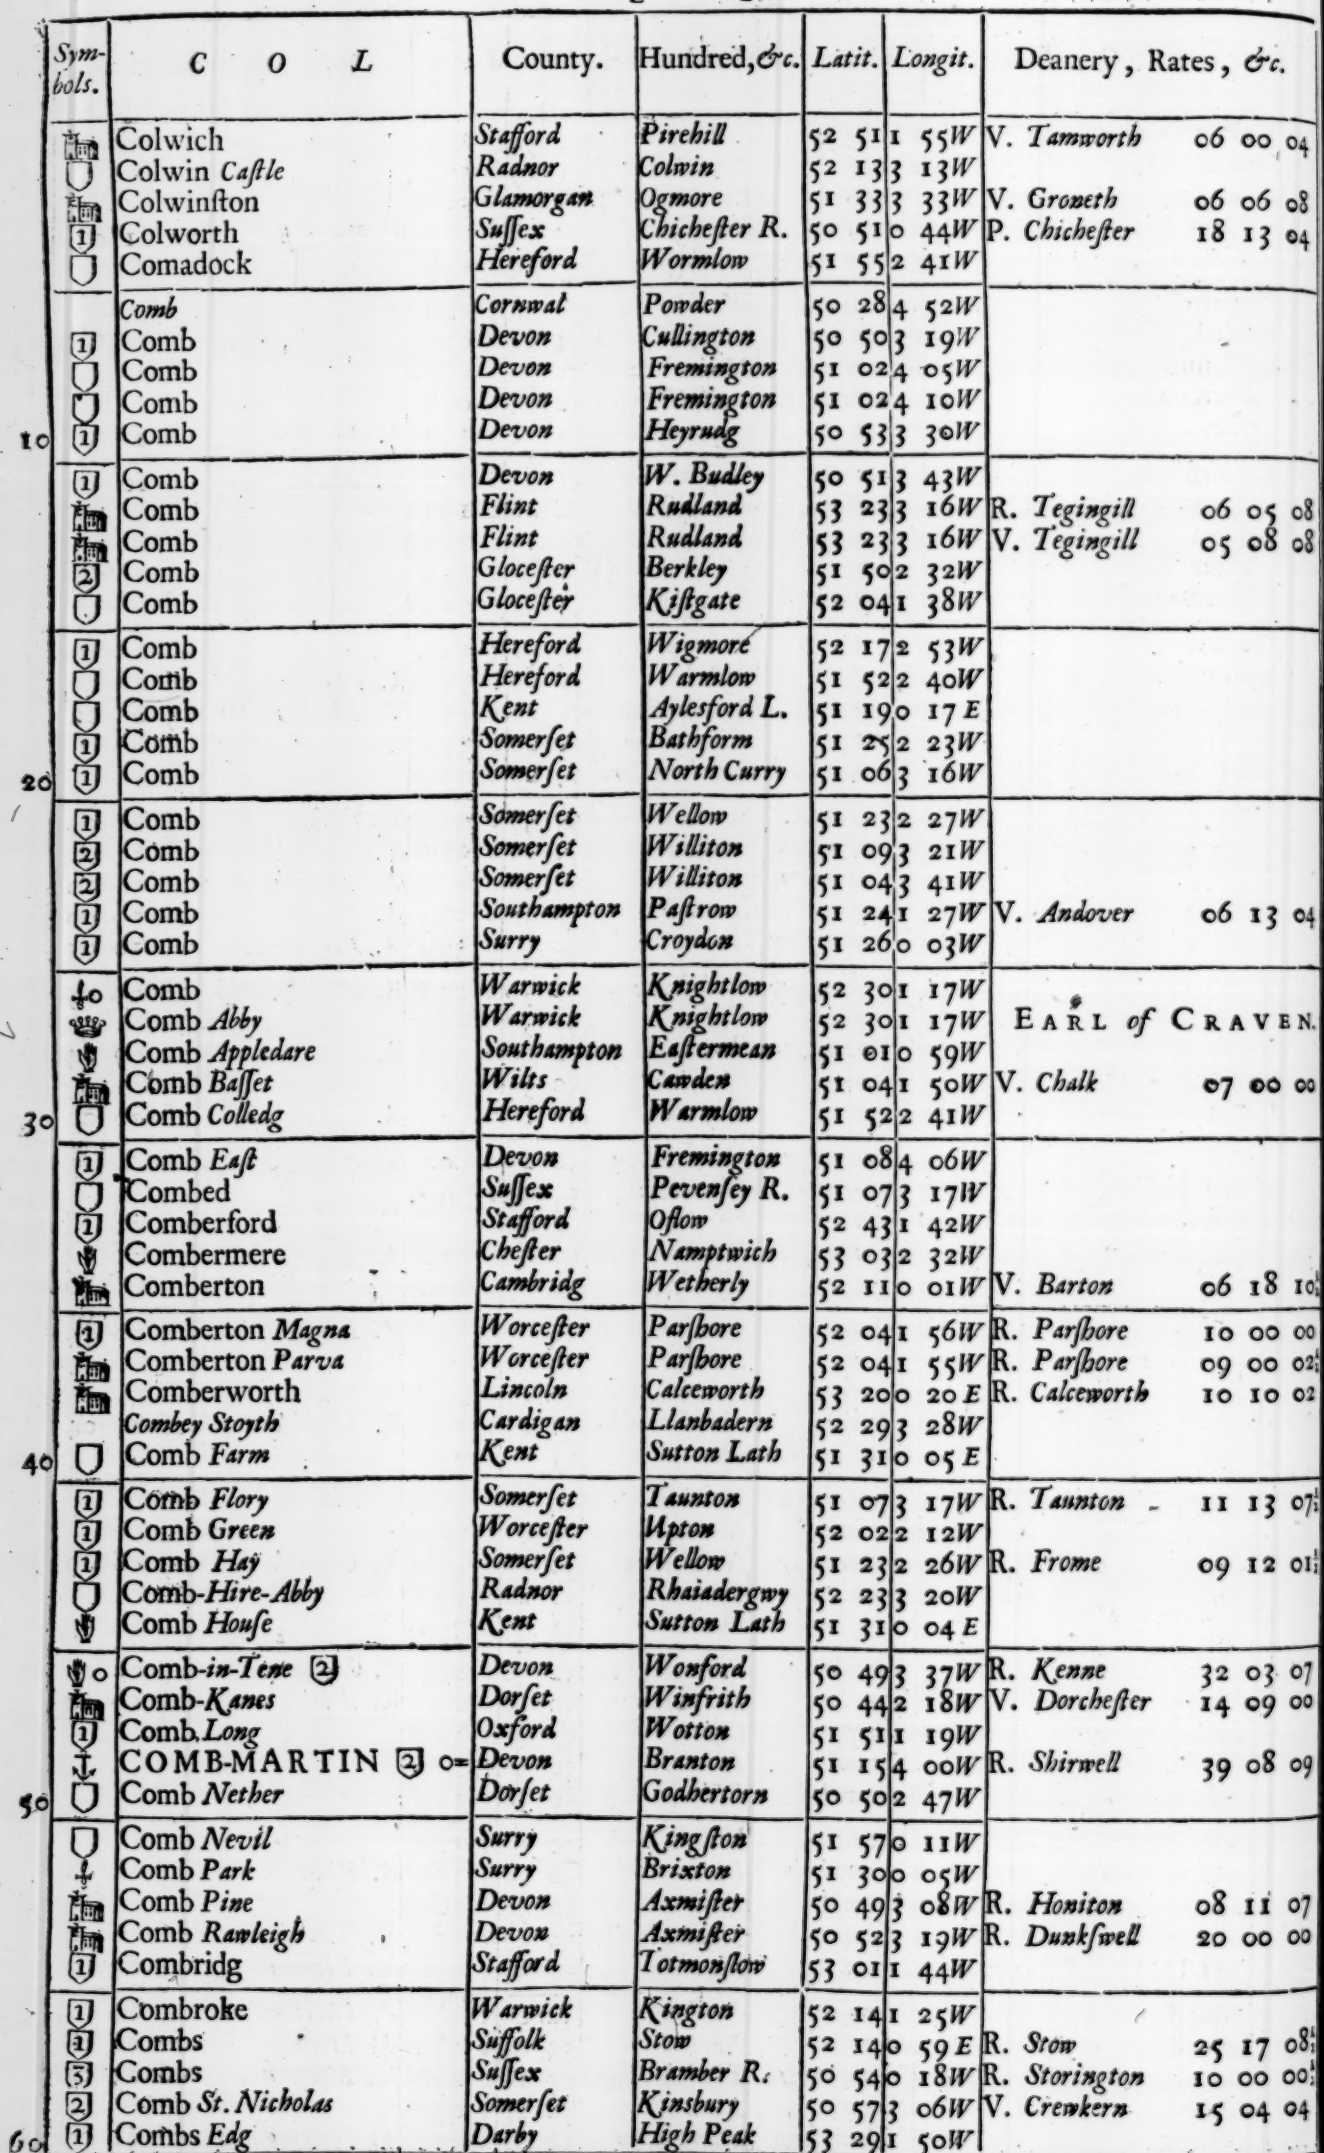 Symbols. C O L County. Hundred, &c. Latit. Longit. Deanery, Rates, &c.
Colwich Stafford Pirehill 52 51 1 55W V. Tamworth 06 00 04
Colwin Caſtle Radnor Colwin 52 13 3 13W
Colwinſton Glamorgan Ogmore 51 33 3 33W V. Groneth 06 06 08
1 Colworth Suſſex Chicheſter R. 50 51 0 44W P. Chicheſter 18 13 04
Comadock Hereford Wormlow 51 55 2 41W
Comb Cornwal Powder 50 28 4 52W
1 Comb Devon Cullington 50 50 3 19W
Comb Devon Fremington 51 02 4 05W
Comb Devon Fremington 51 02 4 10W
10 1 Comb Devon Heyrudg 50 53 3 30W
1 Comb Devon W. Budley 50 51 3 43W
Comb Flint Rudland 53 23 3 16W R. Tegingill 06 05 08
Comb Flint Rudland 53 23 3 16W V. Tegingill 05 08 08
2 Comb Gloceſter Berkley 51 50 2 32W
Comb Gloceſter Kiſtgate 52 04 1 38W
1 Comb Hereford Wigmore 52 17 2 53W
Comb Hereford Warmlow 51 52 2 40W
Comb Kent Aylesford L. 51 19 0 17 E
1 Comb Somerſet Bathform 51 25 2 23W
20 1 Comb Somerſet North Curry 51 06 3 16W
1 Comb Somerſet Wellow 51 23 2 27W
2 Comb Somerſet Williton 51 09 3 21W
2 Comb Somerſet Williton 51 04 3 41W
1 Comb Southampton Paſtrow 51 24 1 27W V. Andover 06 13 04
1 Comb Surry Croydon 51 26 0 03W
Comb Warwick Knightlow 52 30 1 17W
Comb Abby Warwick Knightlow 52 30 1 17W EARL of CRAVEN.
Comb Appledare Southampton Eaſtermean 51 01 0 59W
Comb Baſſet Wilts Cawden 51 04 1 50W V. Chalk 07 00 00
30 Comb Colledg Hereford Warmlow 51 52 2 41W
1 Comb Eaſt Devon Fremington 51 08 4 06W
Combed Suſſex Pevenſey R. 51 07 3 17W
1 Comberford Stafford Oflow 52 43 1 42W
Combermere Cheſter Namptwich 53 03 2 32W
Comberton Cambridg Wetherly 52 11 0 01W V. Barton 06 18 10½
1 Comberton Magna Worceſter Parſhore 52 04 1 56W R. Parſhore 10 00 00
Comberton Parva Worceſter Parſhore 52 04 1 55W R. Parſhore 09 00 02½
Comberworth Lincoln Calceworth 53 20 0 20 E R. Calceworth 10 10 02
Combey Stoyth Cardigan Llanbadern 52 29 3 28W
40 Comb Farm Kent Sutton Lath 51 31 0 05 E
1 Comb Flory Somerſet Taunton 51 07 3 17W R. Taunton 11 13 07½
1 Comb Green Worceſter Upton 52 02 2 12W
1 Comb Hay Somerſet Wellow 51 23 2 26W R. Frome 09 12 01½
Comb-Hire-Abby Radnor Rhaiadergwy 52 23 3 20W
Comb Houſe Kent Sutton Lath 51 31 0 04 E
Comb-in-Tene 2 Devon Wonford 50 49 3 37W R. Kenne 32 03 07
Comb-Kanes Dorſet Winfrith 50 44 2 18W V. Dorcheſter 14 09 00
1 Comb Long Oxford Wotton 51 51 1 19W
COMB-MARTIN 2 o= Devon Branton 51 15 4 00W R. Shirwell 39 08 09
50 Comb Nether Dorſet Godhertorn 50 50 2 47W
Comb Nevil Surry Kingſton 51 57 0 11W
Comb Park Surry Brixton 51 30 0 05W
Comb Pine Devon Axmiſter 50 49 3 08W R. Honiton 08 11 07
Comb Rawleigh Devon Axmiſter 50 52 3 19W R. Dunkſwell 20 00 00
1 Combridg Stafford Totmonſlow 53 01 1 44W
1 Combroke Warwick Kington 52 14 1 25W
1 Combs Suffolk Stow 52 14 0 59 E R. Stow 25 17 08½
3 Combs Suſſex Bramber R. 50 54 0 18W R. Storington 10 00 00½
2 Comb St. Nicholas Somerſet Kinsbury 50 57 3 06W V. Crewkern 15 04 04
60 1 Combs Edg Darby High Peak 53 29 1 50W